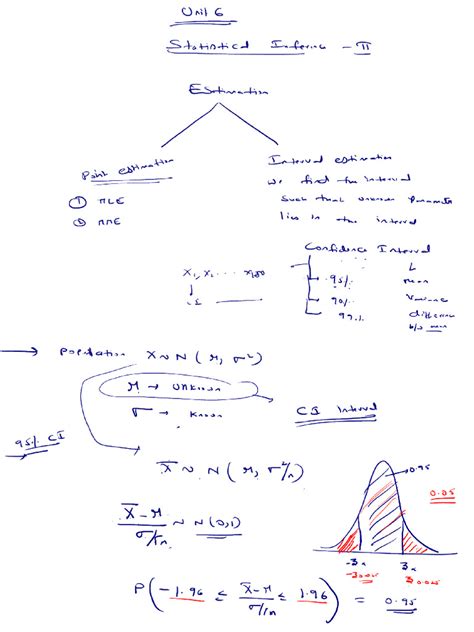 Unit 6
Statistical Inference - II
Estimation
Point estimation
① MLE
② MME
Interval estimation
We find the interval
such that unknown Parameter
lies in the interval
Confidence Interval
X₁, X₂ .... X₁₀₀
95%
90%
99%
mean
Variance
difference
b/w mean
→ Population X ~ N(μ, σ²)
μ → unknown
σ → known
CI Interval
95% CI
X̄ ~ N(μ, σ²/n)
X̄-μ / σ/√n ~ N(0,1)
0.95
0.05
P(-1.96 ≤ X̄-μ / σ/√n ≤ 1.96) = 0.95